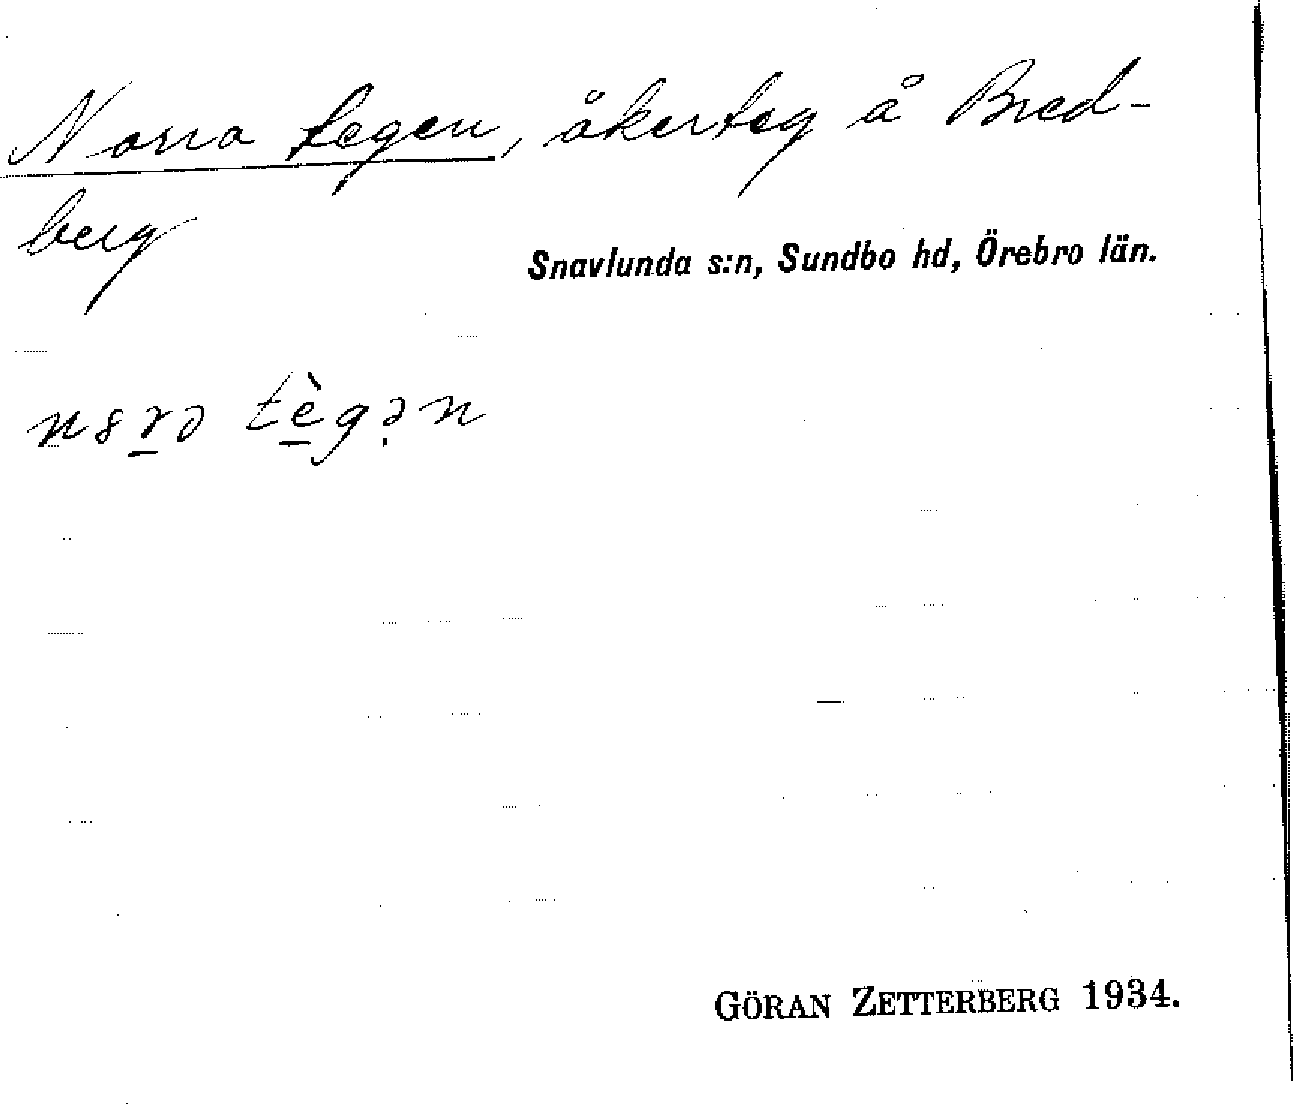 Norra tegen, åkerteg å Bred-
berg
Snavlunda s:n, Sundbo hd, Örebro län.
n8r̲ə tè̲gə̣n
GÖRAN ZETTERBERG 1934.